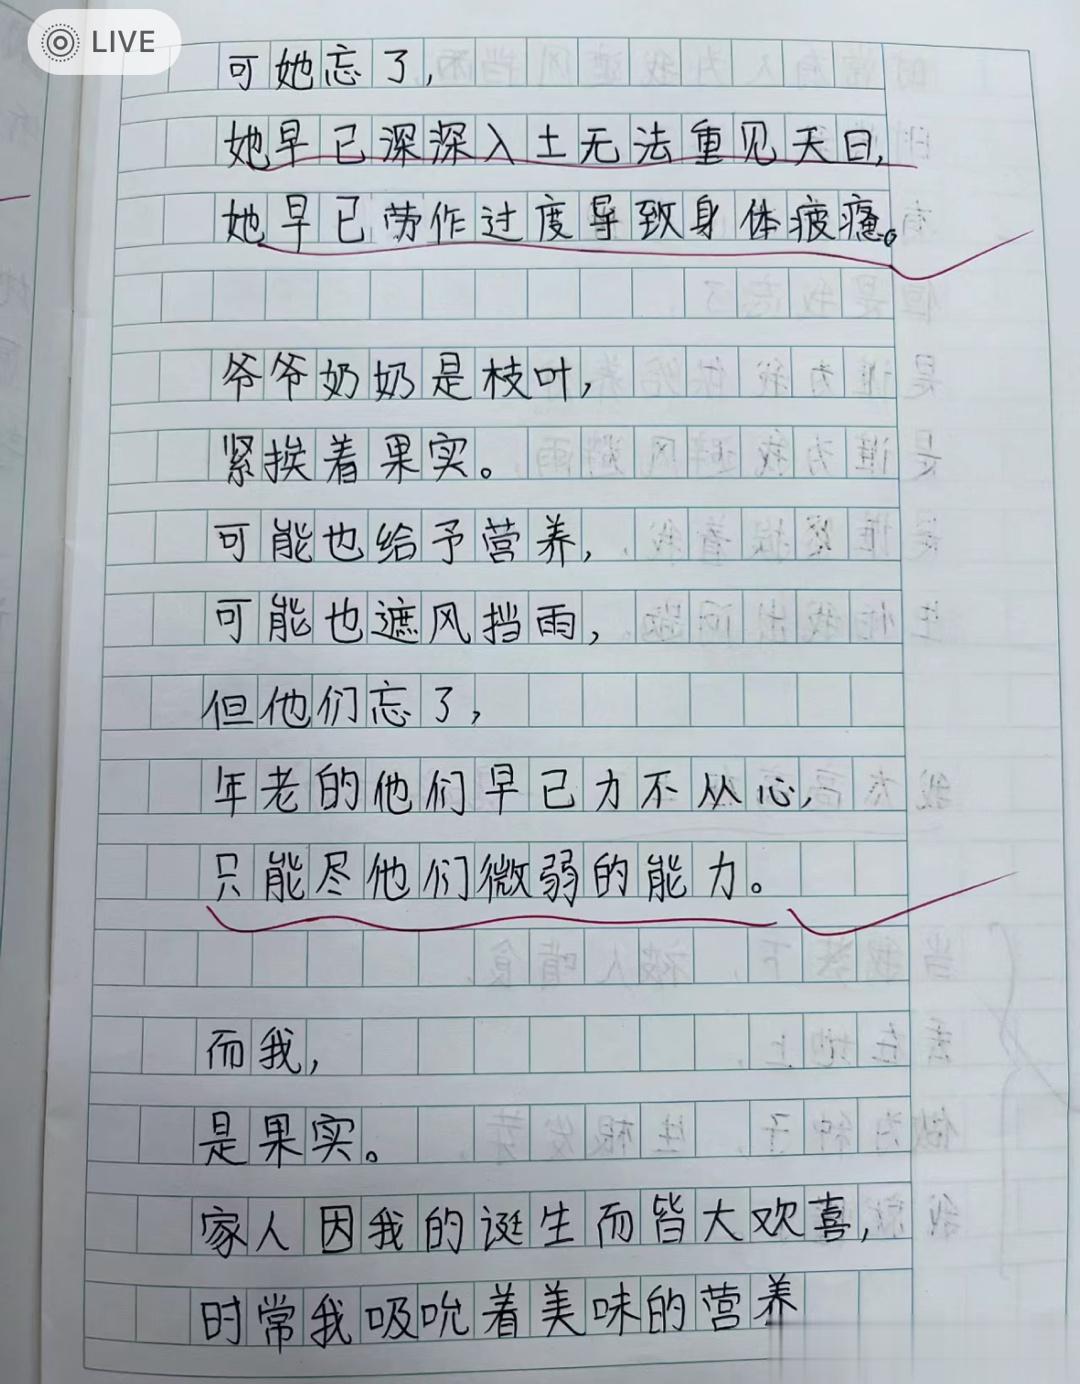 LIVE
可她忘了，
她早已深深入土无法重见天日，
她早已劳作过度导致身体疲惫。
爷爷奶奶是枝叶，
紧挨着果实。
可能也给予营养，
可能也遮风挡雨，
但他们忘了，
年老的他们早已力不从心，
只能尽他们微弱的能力。
而我，
是果实。
家人因我的诞生而皆大欢喜，
时常我吸吮着美味的营养